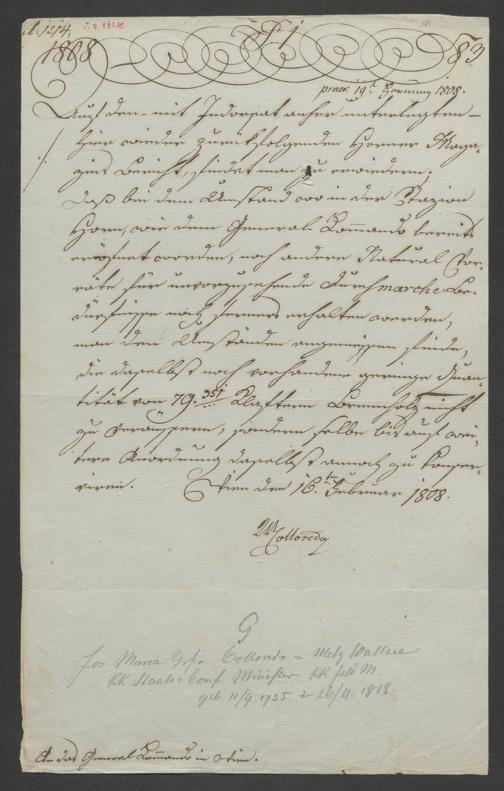 1214.
1808
83
praes: 19t 1808.
Auf den mit Indorsat anher unterlegten
hier wieder zurückfolgenden Horner Maga-
zins Bericht, findet man zu erwiedern:
daß bei dem Umstand wo in der Stazion
Horn, wie dem General Kommando bereits
eröfnet worden, noch andere Natural Vor-
räthe für unvorzusehende Durchmarche Be-
dürfnisse noch ferners erhalten werden,
man den Umständen angemessen finde,
die daselbst noch vorhandene geringe Quan-
tität von 79. 35/ Klaftern Brennholz nicht
zu veräussern, sondern selbe bis auf wei-
tere Anordnung daselbst annoch zu konser-
viren. Wien den 16ten Februar 1808.
Colloredo
Jos. Maria Colloredo = Metz Wallsee
KK Staats Conf Minister KK
geb 11/9. 1735 + 26/11. 1818
An das General Kommando in Wien.